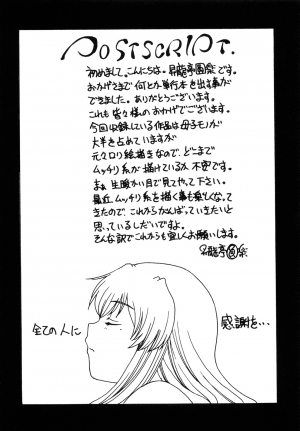 POSTSCRIPT.
初めまして。こんにちは。昇龍亭圓楽です。
おかげさまで何とか単行本を出す事が
できました。ありがとうございます。
これも皆々様のおかげでございます。
今回収録している作品は母子モノが
大半を占めていますが
元々ロリ絵描きなので、どこまで
ムッチリ系が描けているか不安です。
まぁ生暖かい目で見てやって下さい。
最近ムッチリ系を描く事も楽しくなって
きたので、これからがんばっていきたいと
思っているしだいですよ。
そんな訳でこれからも宜しくお願いします。
昇龍亭圓楽
全ての人に
感謝を…